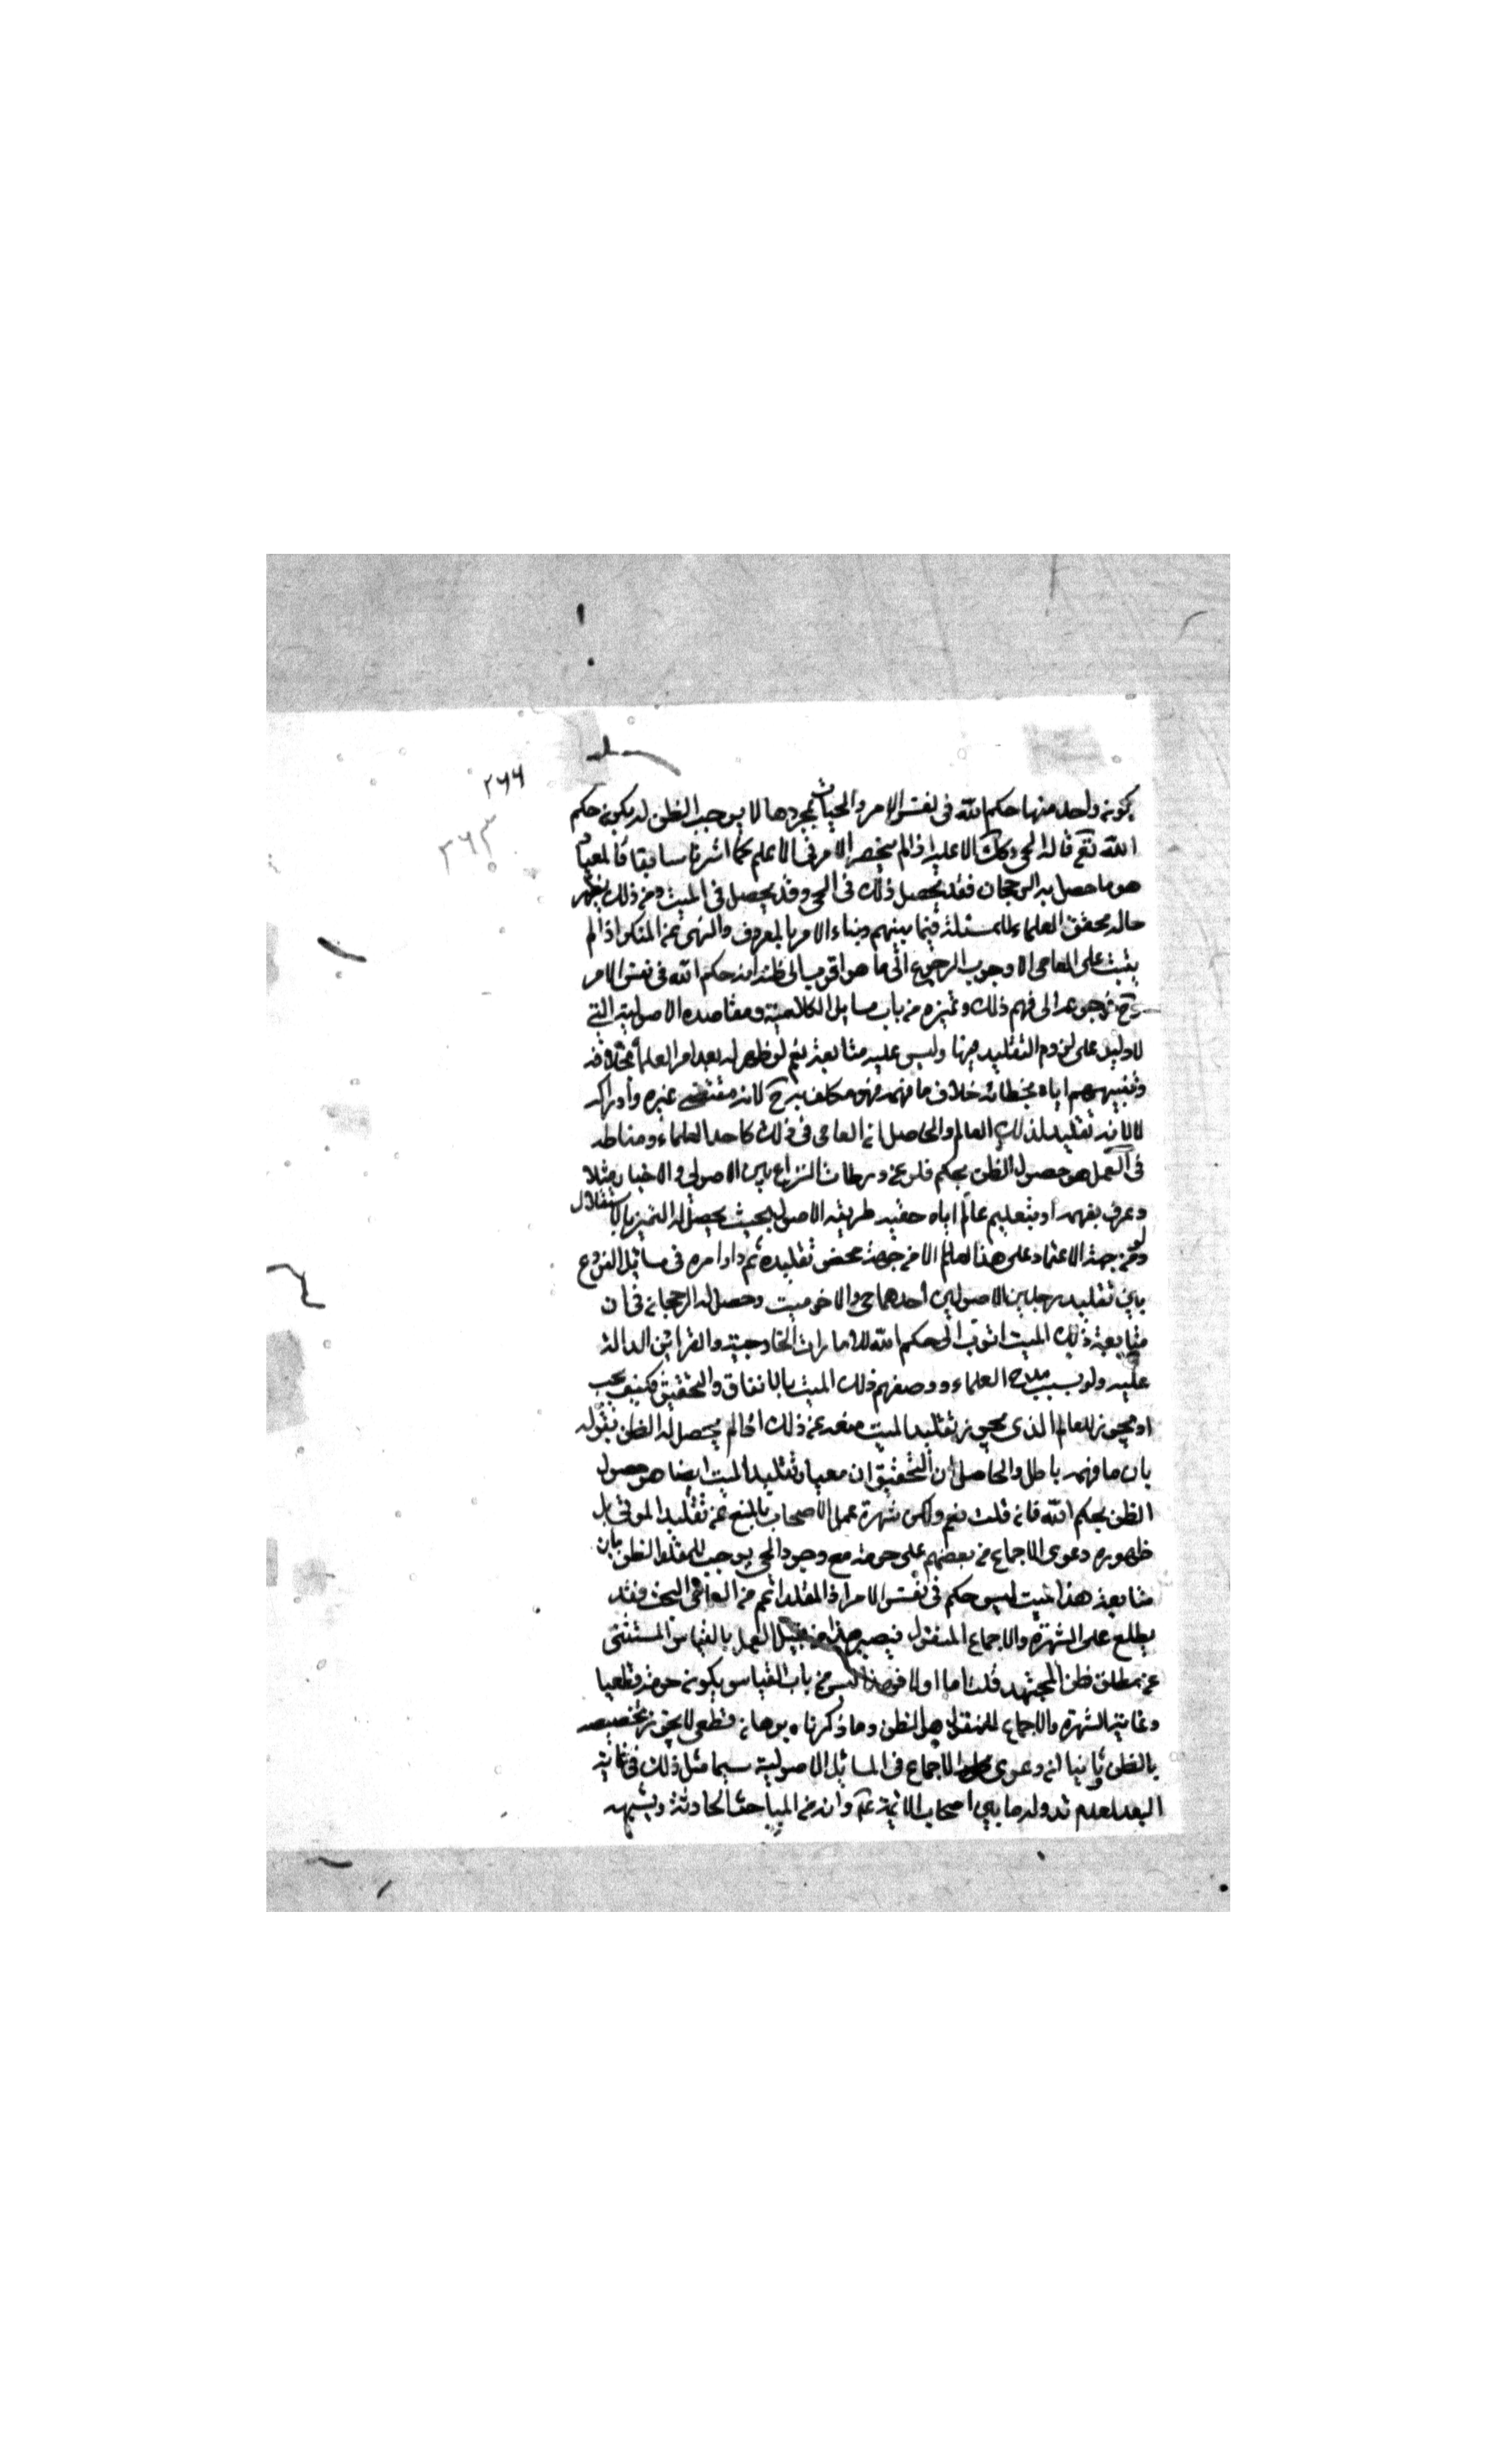 ٢٦٦
٢٦٣
يكون واحد منها حكم الله في نفس الامر والحياة بمجردها لا يوجب الظن له بكون حكم
الله تع قاله الحي وكك الاعلية اذا لم ينحصر الامر في الاعلم كما اشرنا سابقا فالمعيار
هو ما حصل به الرجحان فقد يحصل ذلك في الحي وقد يحصل في الميت ومن ذلك يظهر
حال محقق العلماء للمسئلة فيما بينهم وبناء الامر بالمعروف والنهى عن المنكر اذا لم
يثبت على العامى الا وجوب الرجوع الى ما هو اقرب الى ظنه انه حكم الله في نفس الامر
فرجوعه الى فهم ذلك وتميزه من باب مسايل الكلامية ومقاصده الاصولية التي
لا دليل على لزوم التقليد فيها وليس عليه متابعة نعم لو ظهر له بعد امر العلماء بخلافه
وتنبيههم اياه بخطائه خلاف ما فهمه فهو مكلف به ح لانه مقتضى غيره وادراكه
لا لانه تقليد لذلك العالم والحاصل ان العامى في ذلك كاحد العلماء ومناطه
في العمل هو حصول الظن بحكم فلو عن ورطات النزاع بين الاصولى والاخبارى مثلا
وعرف بفهمه او بتعليم عالم اياه حقية طريقة الاصول بحيث يحصل له التميز بالاستقلال
ولو من جهة الاعتماد على هذا العالم الا من جهة محض تقليده ثم دار امره في مسائل الفروع
بين تقليد رجلين الاصوليين احدهما حي والاخر ميت وحصل له الرجحان في ان
متابعة ذلك الميت اقرب الى حكم الله للامارات الخارجية والقرائن الدالة
عليه ولو بسبب مدح العلماء ووصفهم ذلك الميت بالاتفاق والتحقيق فكيف يجب
او يجوز للعالم الذي يجوز تقليد الميت منعه عن ذلك اذا لم يحصل له الظن بقوله
بان ما فهمه باطل والحاصل ان التحقيق ان معيار تقليد الميت ايضا هو حصول
الظن بحكم الله فان قلت نعم ولكن شهرة عمل الاصحاب بالمنع عن تقليد الموتى بل
ظهوره دعوى الاجماع من بعضهم على حرمته مع وجود الحي يوجب للمقلد الظن بان
متابعة هذا الميت ليس حكم في نفس الامر اذ المقلد اعم من العامى البحت فقد
يطلع على الشهرة والاجماع المنقول فيصير هذا من قبيل العمل بالقياس المستثنى
عن مطلق ظن المجتهد قلت اما اولا فهذا ليس من باب القياس بكون حرمته قطعيا
وغاية الشهرة والاجماع المنقول هو الظن وما ذكرناه برهان قطعى لا يجوز تخصيصه
بالظن وثانيا ان دعوى الاجماع في المسائل الاصولية سيما مثل ذلك في غاية
البعد لعدم تداوله ما بين اصحاب الائمة ع وانه من المباحث الحادثة ويشهد